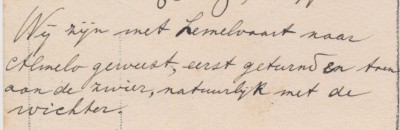 Wij zijn met Hemelvaart naar
Almelo geweest, eerst geturnd en toen
aan de zwier, natuurlijk met de
wichter.